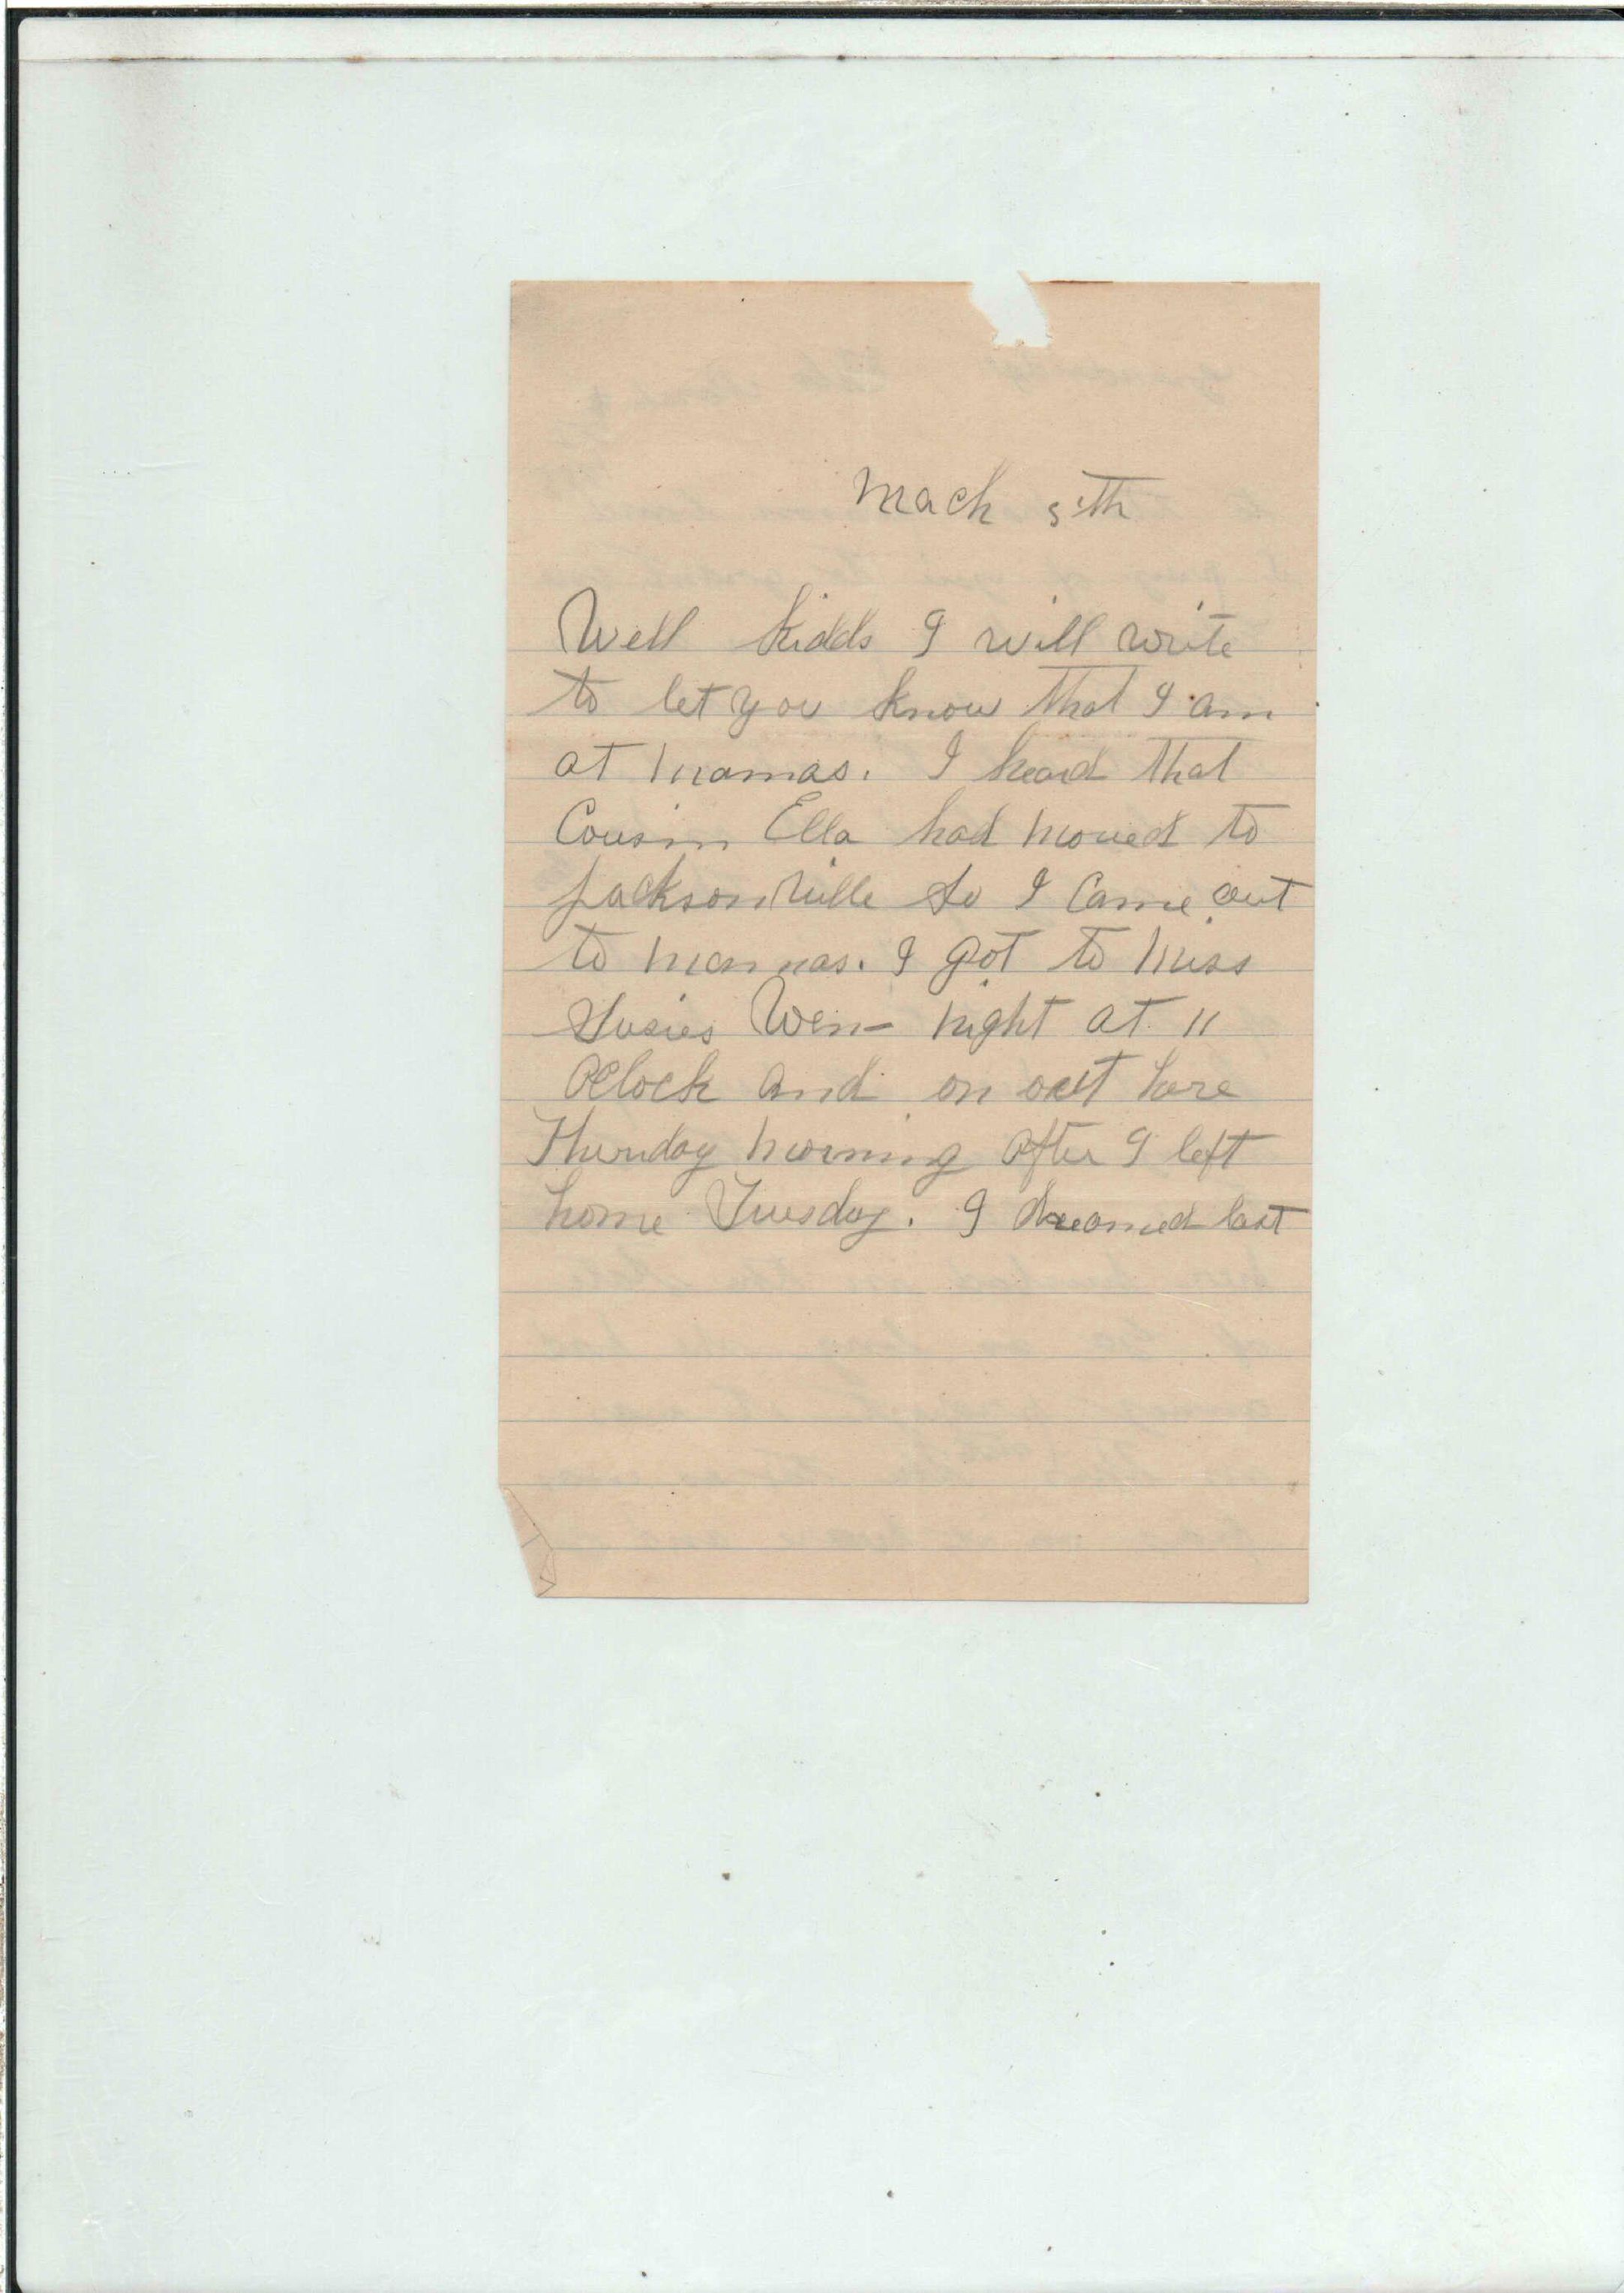 Mach 5th
Well Kidds I will write
to let you know that I am
at mamas. I heard that
Cousin Ella had moved to
Jacksonville So I Came out
to mamas. I got to Miss
Susies Wen- night at 11
Oclock and on out here
Thursday morning after I left
home Tuesday. I dreamed last